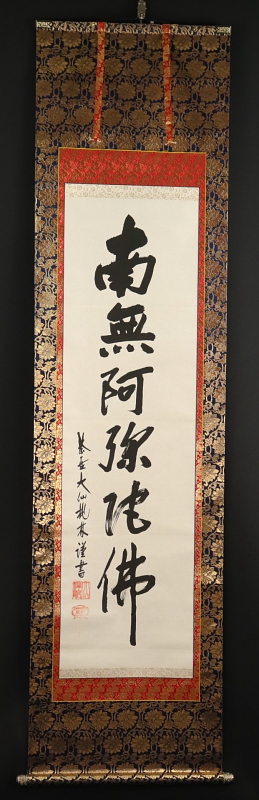 南無阿弥陀佛
大仙龍謹書